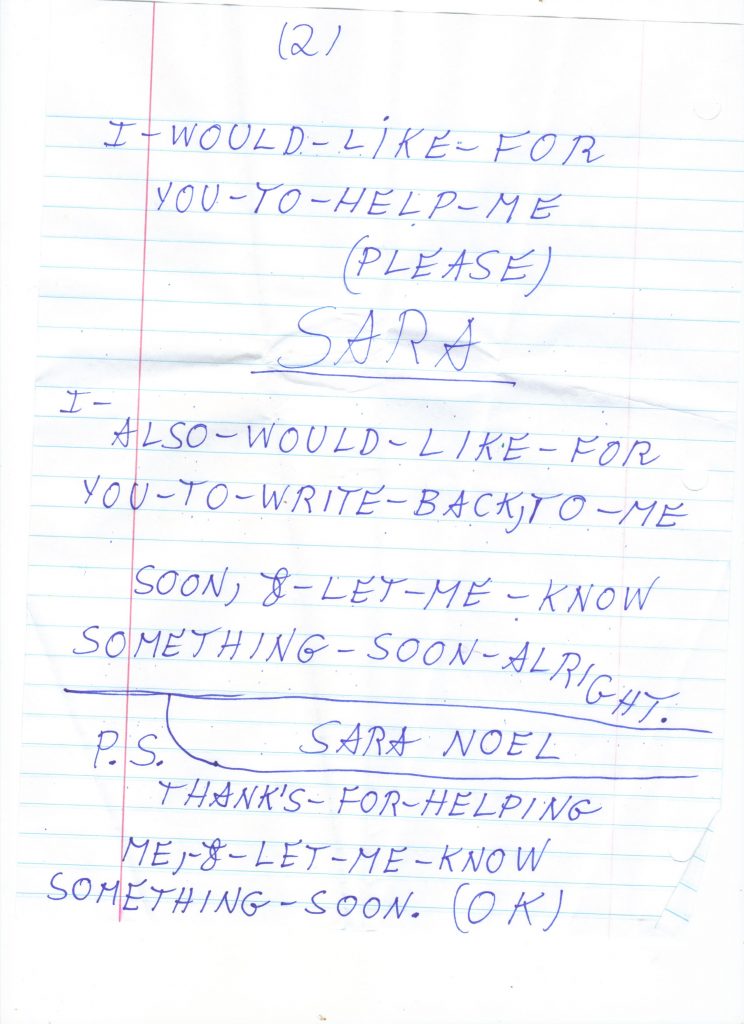 (2)
I-WOULD-LIKE-FOR
YOU-TO-HELP-ME
(PLEASE)
SARA
I-
ALSO-WOULD-LIKE-FOR
YOU-TO-WRITE-BACK, TO-ME
SOON, &-LET-ME-KNOW
SOMETHING-SOON-ALRIGHT.
SARA NOEL
P.S.
THANK'S-FOR-HELPING
ME,-&-LET-ME-KNOW
SOMETHING-SOON. (OK)